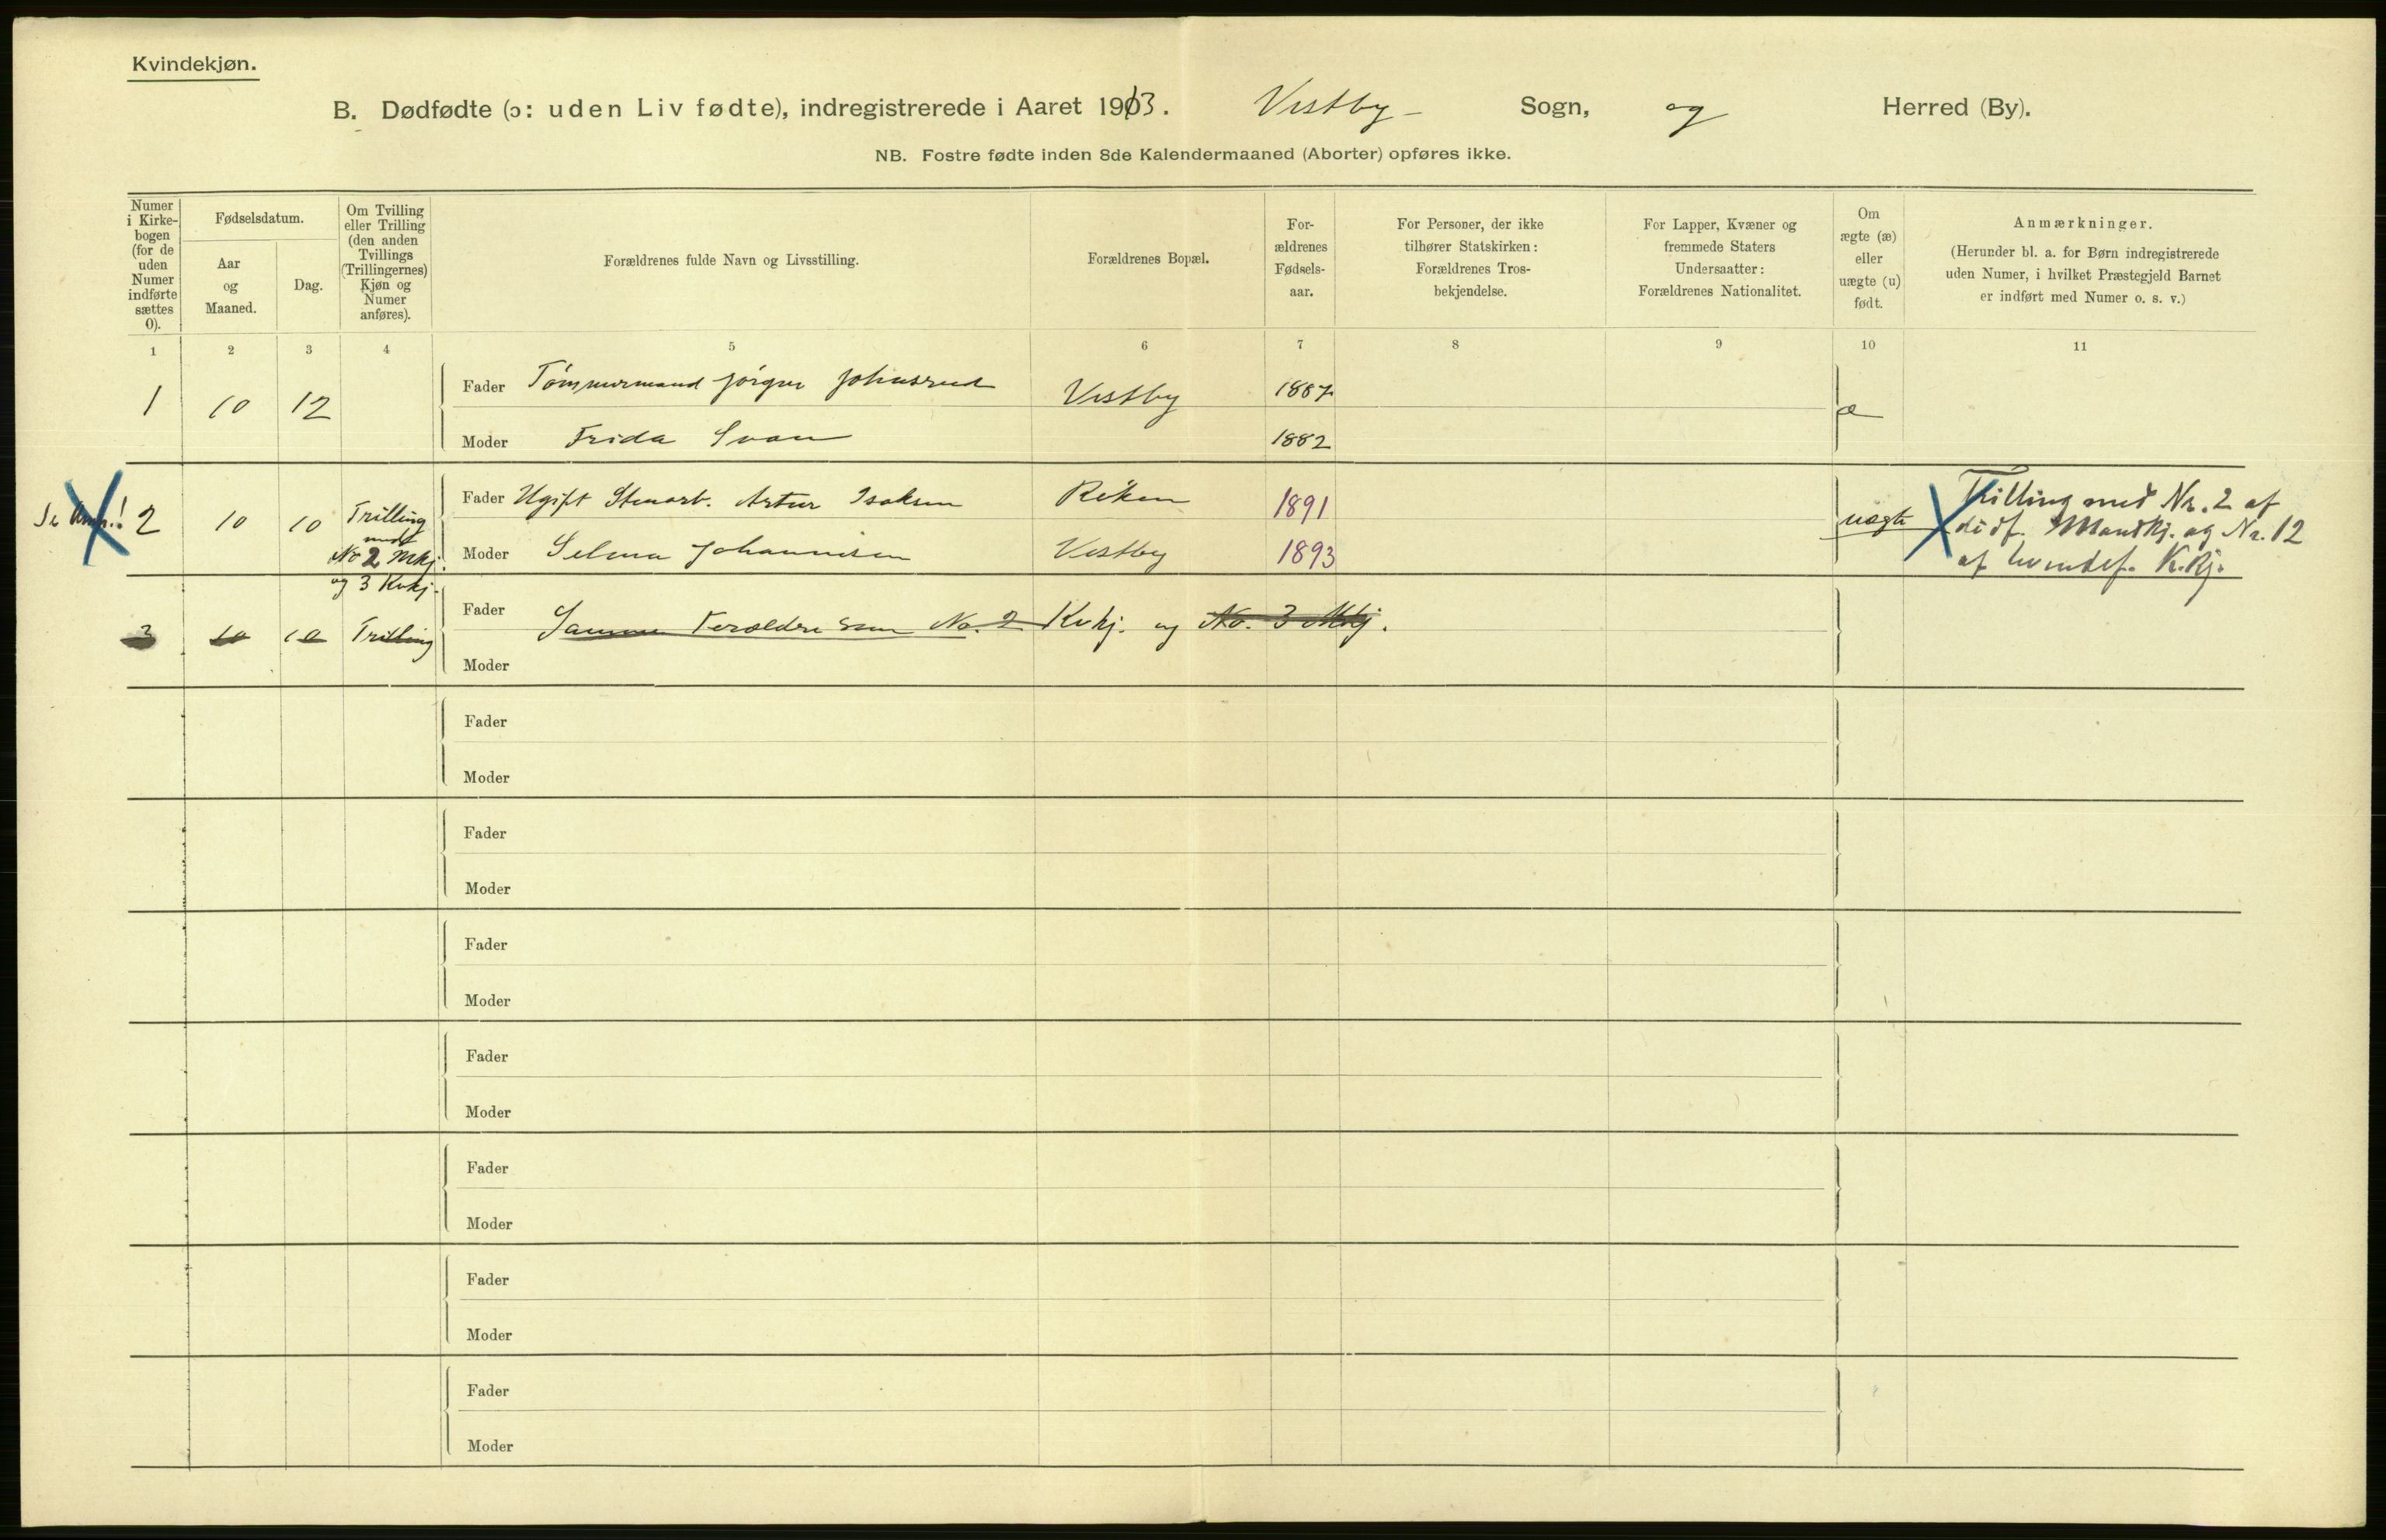 Kvindekjøn.
B. Dødfødte (ɔ: uden Liv fødte), indregistrerede i Aaret 1913. Vestby Sogn, og Herred (By).
NB. Fostre fødte inden 8de Kalendermaaned (Aborter) opføres ikke.
Numer i Kirkebogen (for de uden Numer indførte sættes 0).
Fødselsdatum.
Aar og Maaned.
Dag.
Om Tvilling eller Trilling (den anden Tvillings (Trillingernes) Kjøn og Numer anføres).
Forældrenes fulde Navn og Livsstilling.
Forældrenes Bopæl.
Forældrenes Fødselsaar.
For Personer, der ikke tilhører Statskirken: Forældrenes Trosbekjendelse.
For Lapper, Kvæner og fremmede Staters Undersaatter: Forældrenes Nationalitet.
Om ægte (æ) eller uægte (u) født.
Anmærkninger.
(Herunder bl. a. for Børn indregistrerede uden Numer, i hvilket Præstegjeld Barnet er indført med Numer o. s. v.)
1 2 3 4 5 6 7 8 9 10 11
1 10 12 Fader Tømmermand Jørgen Johnsrud Vestby 1887 æ
Moder Frida Svan 1882
Se Anm.! 2 10 10 Trilling med No 2 Mkj. og 3 Kvkj. Fader Ugift Stenarb. Artur Isaksen Røken 1891 uægte
Moder Selma Johannisen Vestby 1893
Trilling med Nr. 2 af
dødf. Mandkj. og Nr. 12
af levendef. K.kj.
3 10 10 Trilling Fader Samme Foræeldre som No. 2 Kvkj. og No. 3 Mkj.
Moder
Fader
Moder
Fader
Moder
Fader
Moder
Fader
Moder
Fader
Moder
Fader
Moder
Fader
Moder